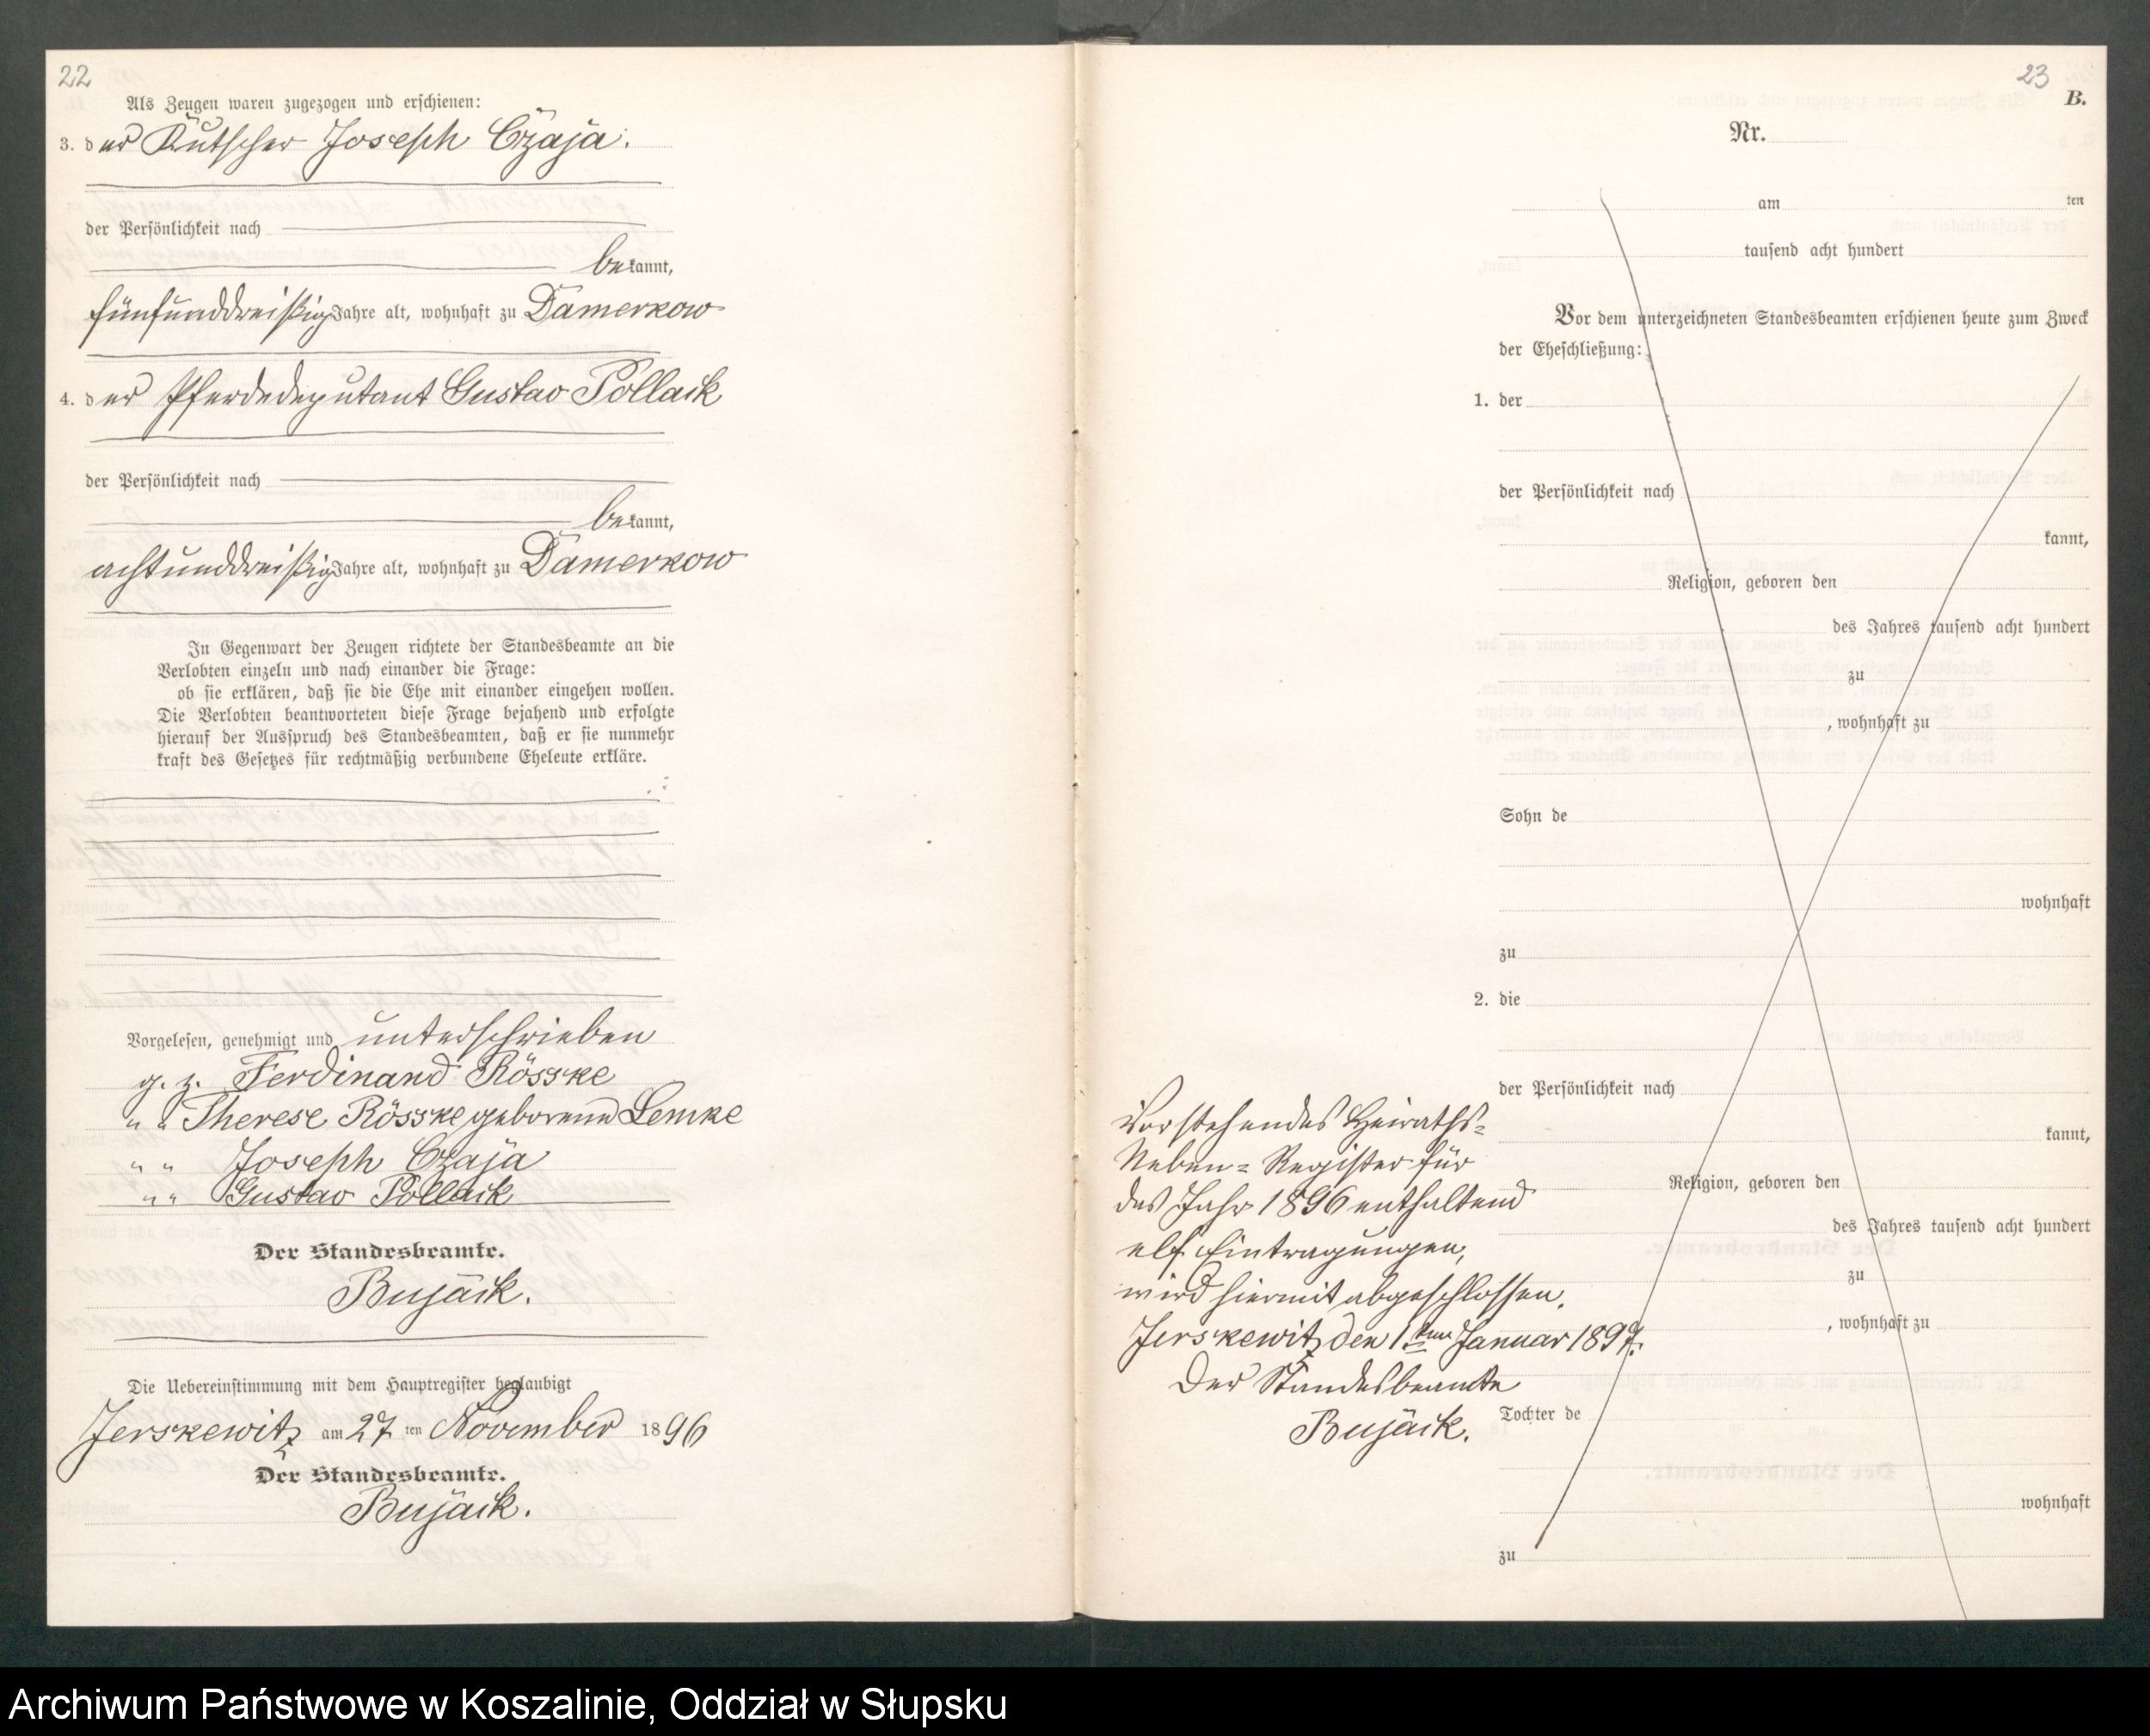 22
Als Zeugen waren zugezogen und erschienen:
3. der Kutscher Joseph Czaja.
der Persönlichkeit nach
bekannt,
fünfunddreißig Jahre alt, wohnhaft zu Damerkow
4. der Pferdedeputant Gustav Pollack
der Persönlichkeit nach
bekannt,
achtunddreißig Jahre alt, wohnhaft zu Damerkow
In Gegenwart der Zeugen richtete der Standesbeamte an die
Verlobten einzeln und nach einander die Frage:
ob sie erklären, daß sie die Ehe mit einander eingehen wollen.
Die Verlobten beantworteten diese Frage bejahend und erfolgte
hierauf der Ausspruch des Standesbeamten, daß er sie nunmehr
kraft des Gesetzes für rechtmäßig verbundene Eheleute erkläre.
Vorgelesen, genehmigt und unterschrieben
g. z. Ferdinand Rösske
" " Therese Rösske geborene Lemke
" " Joseph Czaja
" " Gustav Pollack
Der Standesbeamte.
Bujack.
Die Uebereinstimmung mit dem Hauptregister beglaubigt
Jerskewitz am 27 ten November 1896
Der Standesbeamte.
Bujack.
23
B.
Nr.
am ten
tausend acht hundert
Vor dem unterzeichneten Standesbeamten erschienen heute zum Zweck
der Eheschließung:
1. der
der Persönlichkeit nach
kannt,
Religion, geboren den
des Jahres tausend acht hundert
zu
, wohnhaft zu
Sohn de
wohnhaft
zu
2. die
der Persönlichkeit nach
kannt,
Religion, geboren den
des Jahres tausend acht hundert
zu
, wohnhaft zu
Tochter de
wohnhaft
zu
Vorstehendes Heiraths=
Neben=Register für
das Jahr 1896 enthaltend
elf Eintragungen,
wird hiermit abgeschlossen.
Jerskewitz den 1ten Januar 1897.
Der Standesbeamte
Bujack.
Archiwum Państwowe w Koszalinie, Oddział w Słupsku